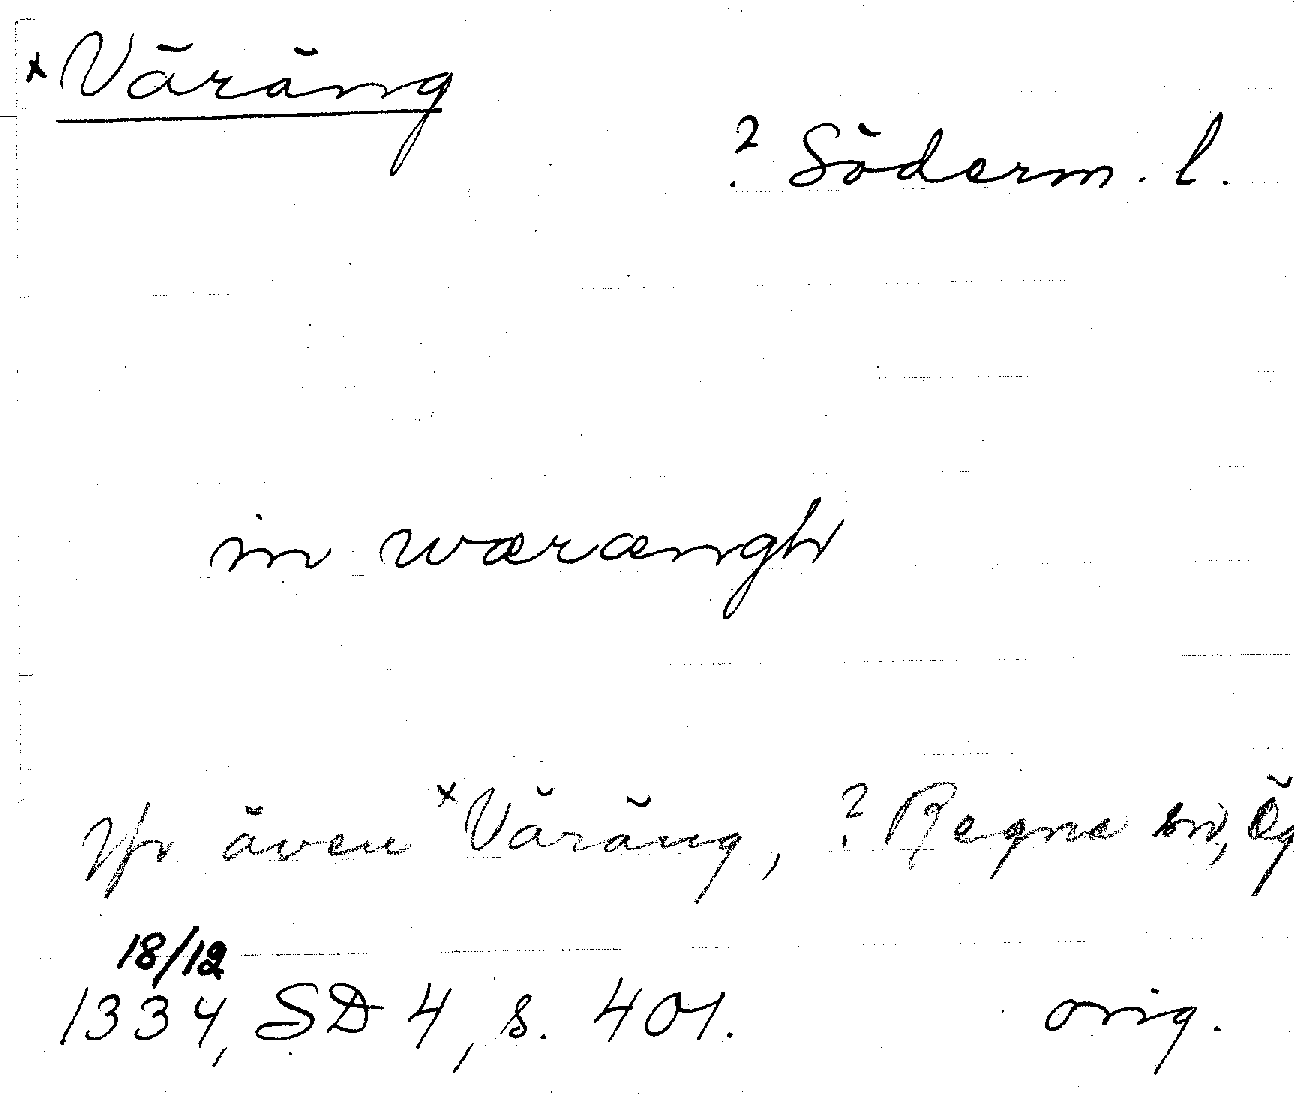 x Väräng
? Söderm. l.
in wærængh
Jfr även x Väräng, ? Regna sn, Ög
18/12
1334, SD 4, s. 401. orig.